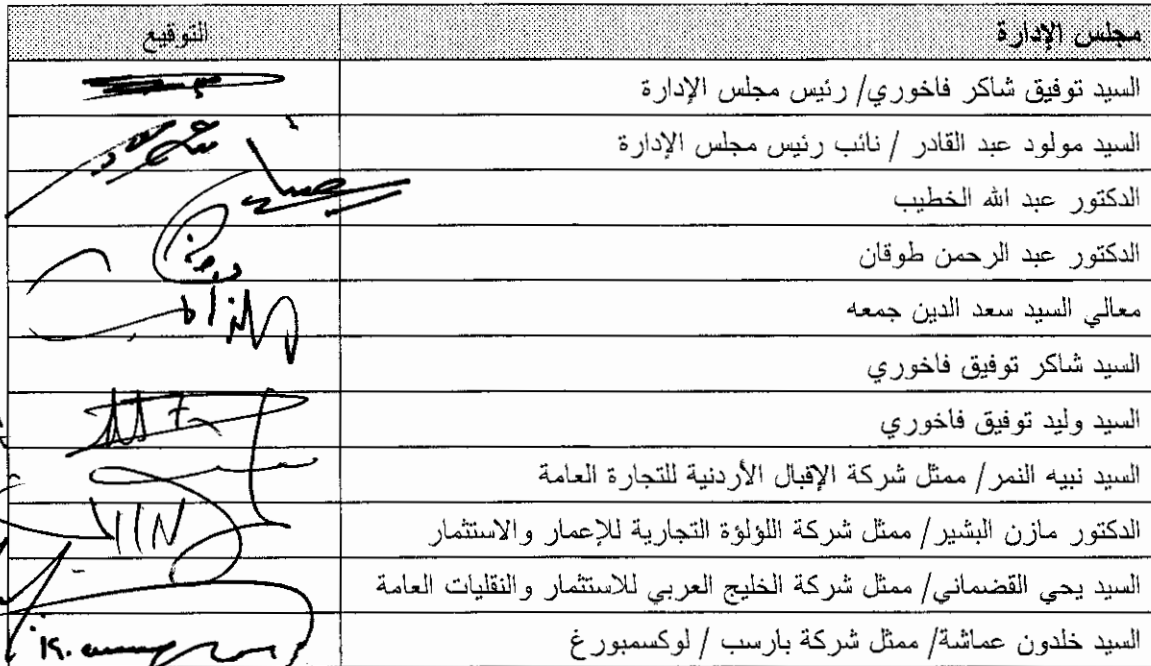 مجلس الإدارة
التوقيع
السيد توفيق شاكر فاخوري/ رئيس مجلس الإدارة
السيد مولود عبد القادر / نائب رئيس مجلس الإدارة
الدكتور عبد الله الخطيب
الدكتور عبد الرحمن طوقان
معالي السيد سعد الدين جمعه
السيد شاكر توفيق فاخوري
السيد وليد توفيق فاخوري
السيد نبيه النمر/ ممثل شركة الإقبال الأردنية للتجارة العامة
الدكتور مازن البشير/ ممثل شركة اللؤلؤة التجارية للإعمار والاستثمار
السيد يحي القضماني/ ممثل شركة الخليج العربي للاستثمار والنقليات العامة
السيد خلدون عماشة/ ممثل شركة بارسب / لوكسمبورغ